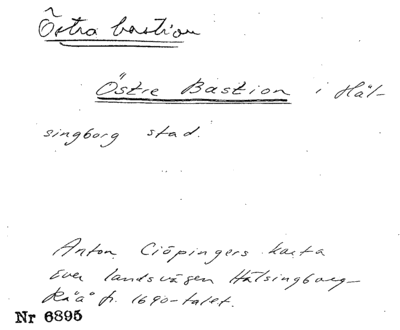 Östra bastion
Östre Bastion i Häl-
singborg stad.
Anton Ciöpingers karta
över landsvägen Hälsingborg-
Råå fr. 1690-talet.
Nr 6895